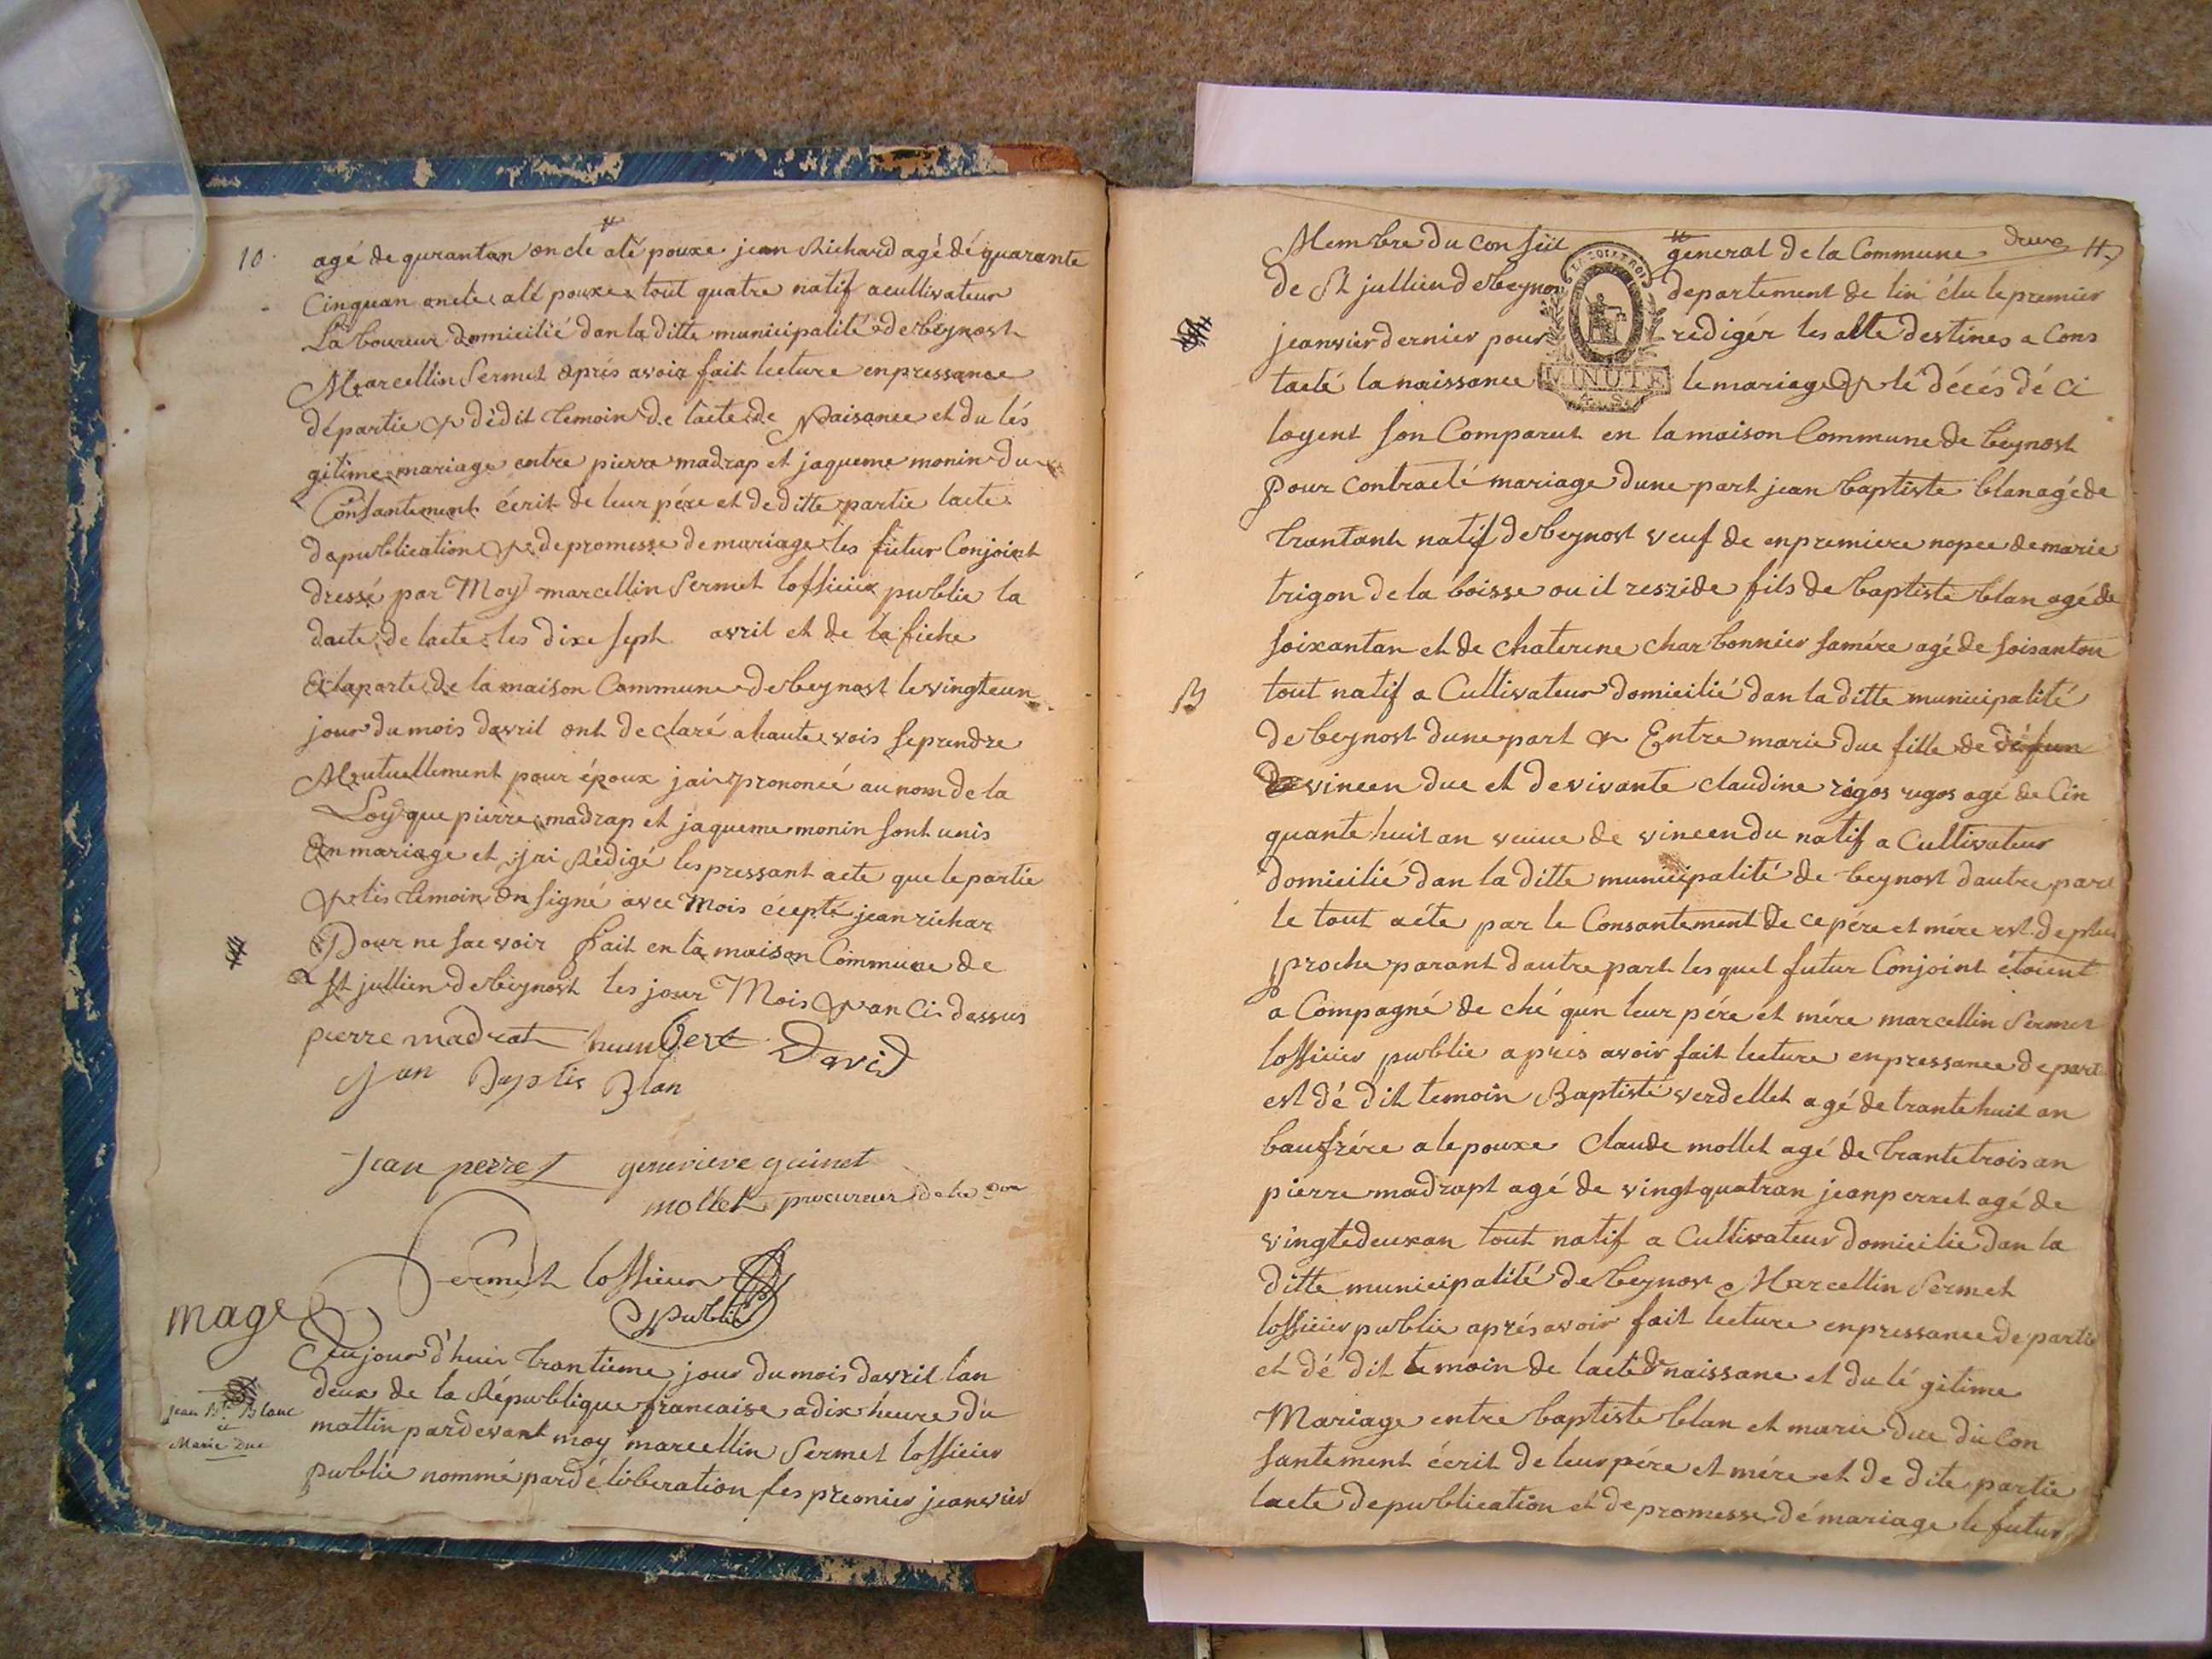 10.
agé de qurantan oncle alé pouxe jean Richard agé dé quarante
Cinquan oncle alé pouxe tout quatre natif acultivateur
La boureur domicilié dan la ditte municipalité de beynost
Marcellin Sermet aprés avoir fait lecture enpressance
départie & dédit temoin de lacte de Naisance et du lés
gitime mariage entre pierre madrap et jaqueme monin du
Consantement écrit de leur pére et de ditte partie lacte
depublication & depromesse demariage les futur Conjoint
dressé par Moy marcellin Sermet lofficier public la
dacte de lacte les dixe sept avril et de la fiche
a laporte de la maison Commune debeynost levingteun
jour du mois davril ont declaré ahaute vois seprendre
Mutuellement pour époux jai prononcé au nom de la
Loy que pierre madrap et jaqueme monin sont unis
En mariage et jai Rédigé les pressant acte que le partie
& lés temoin on signé avec Mois éxepté jean richar
Pour ne sacvoir fait en la maison Commune de
St jullien debeynost les jour Mois & an Ci dassus
pierre madrat humbert David
jan Baptis Blan
jean perret genevieve guinet
mollet procureur de la
Sermet lofficier
public
mage
jean Bte Blanc
à
Marie Duc
Aujour d'huir trantieme jour du mois davril lan
deux de la République francaise adix heure du
mattin pardevant moy marcellin Sermet lofficier
public nommé pardéliberation les premier jeanvier
Membre du conseil general de la Commune 11.
de St jullien debeynos departement de lin élu lepremier
jeanvier dernier pour redigér les atte destines a Cons
tacté la naissance le mariage & lé décés dé ci
MINUTE
loyent son Comparut en la maison Commune de beynost
Pour contracté mariage dune part jean baptiste blan agé de
trantant natif debeynost veuf de enpremiere nopce demarie
trigon de la boisse ou il reszide fils de baptiste blan agé de
soixantan et de chaterine charbonnier samére agé de soisanton
B
tout natif a Cultivateur domicilié dan la ditte municipalité
de beynost dunepart & Entre marie duc fille de défun
de vincen duc et devivante claudine rigos rigos agé de Cin
quante huit an veuve de vincendu natif a Cultivateur
domicilié dan la ditte municipalité de beynost dautre part
le tout acte par le Consantement de ce pére et mére est deplus
proche parant dautre part les quel futur Conjoint étoient
a Compagné de ché qun leur pére et mére marcellin Sermet
lofficier public aprés avoir fait lecture enpressance departi
est dé dit temoin Baptiste verdellet agé de trante huit an
baufrére alepouxe Claude mollet agé de trante trois an
pierre madrapt agé de vingtquatran jeanperret agé de
vingtedeuxan tout natif a Cultivateur domicilie dan la
ditte municipalité debeynost Marcellin Sermet
lofficier public aprés avoir fait lecture enpressance departie
et dé dit temoin de lacté de naissane et du lé gitime
Mariage entre baptiste blan et marie duc du Con
santement écrit de leur pére et mére et de dite partie
lacte depublication et depromesse dé mariage le futur